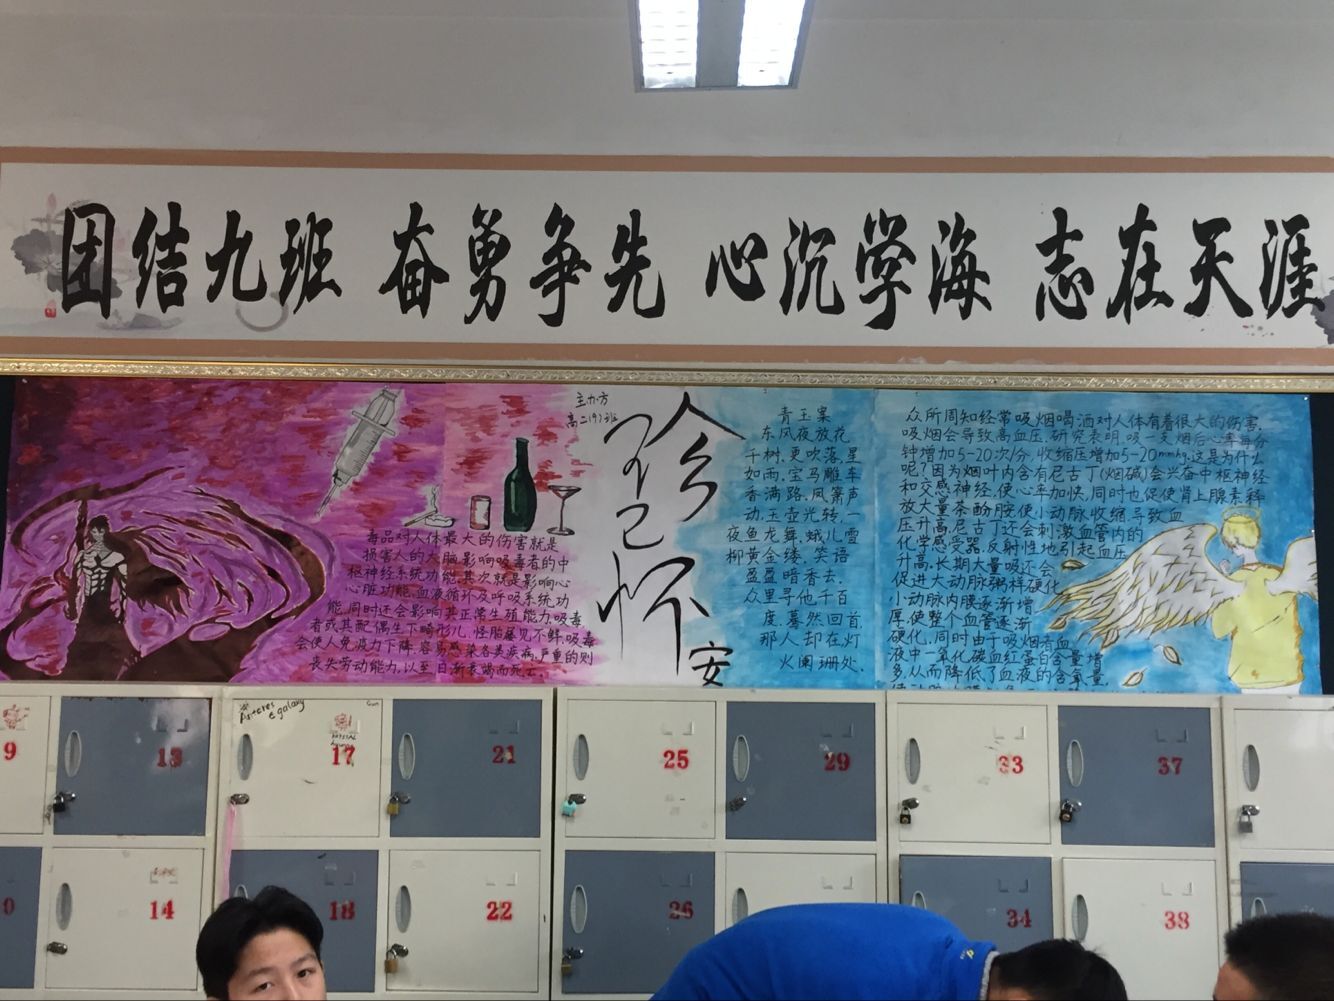 团结九班 奋勇争先 心沉学海 志在天涯
主力方
高二(9)班
毒品对人体最大的伤害就是
损害人的大脑影响吸毒者的中
枢神经系统功能.其次就是影响心
心脏功能.血液循环及呼吸系统功
能.同时还会影响其正常生殖能力.吸毒
者或其配偶生下畸形儿.怪胎屡见不鲜.吸毒
会使人免疫力下降.容易感染各类疾病.严重的则
丧失劳动能力,以至日渐衰竭而死亡.
珍
怀
安
青玉案
东风夜放花
千树.更吹落.星
如雨.宝马雕车
香满路.凤箫声
动.玉壶光转.一
夜鱼龙舞.蛾儿雪
柳黄金缕.笑语
盈盈暗香去.
众里寻他千百
度.蓦然回首
那人却在灯
火阑珊处.
众所周知经常吸烟喝酒对人体有着很大的伤害.
吸烟会导致高血压.研究表明.吸一支烟后心率每分
钟增加5-20次/分.收缩压增加5-20mmhg.这是为什么
呢?因为烟叶内含有尼古丁(烟碱)会兴奋中枢神经
和交感神经,使心率加快,同时也促使肾上腺素释
放大量茶酚胺,使小动脉收缩.导致血
压升高.尼古丁还会刺激血管内的
化学感受器.反射性地引起血压
升高.长期大量吸还会
促进大动脉粥样硬化
小动脉内膜逐渐增
厚.使整个血管逐渐
硬化.同时由于吸烟者血
液中一氧化碳血红蛋白含量增
多.从而降低了血液的含氧量.
Asteres
egalary
9
13
17
21
25
29
33
37
14
18
22
26
34
38